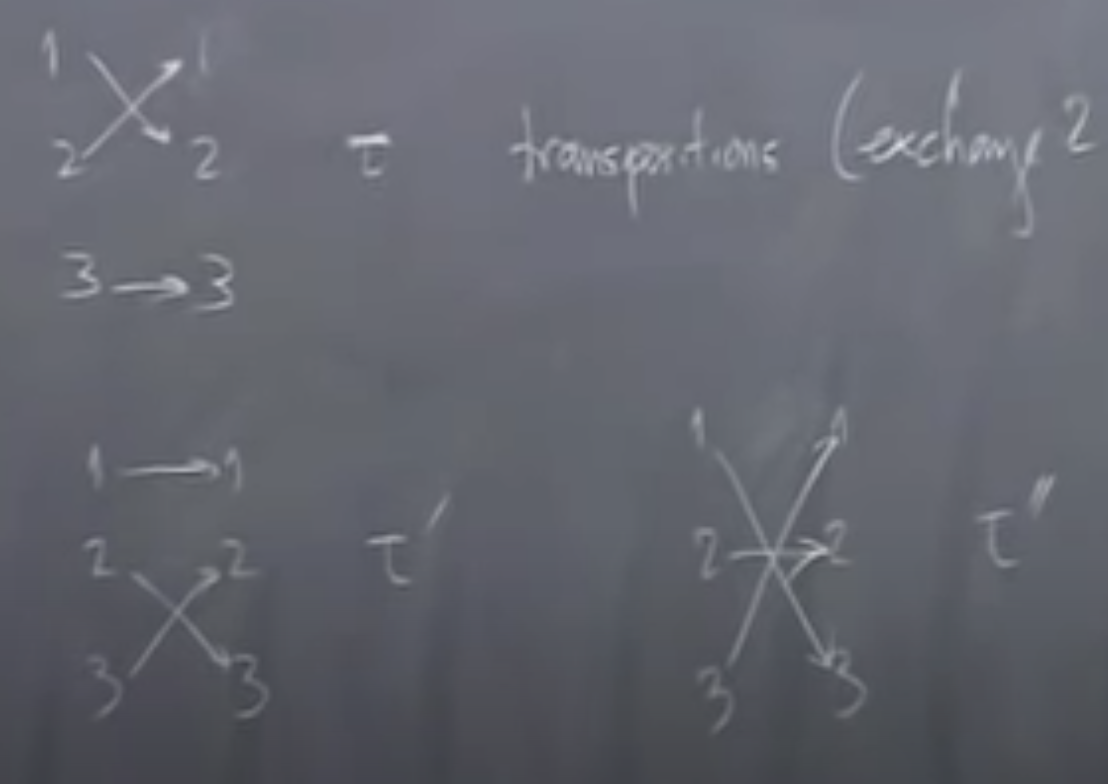 1 1
2 2 τ transpositions (exchange 2
3 → 3
1 → 1
2 2 τ′
3 3
1 1
2 → 2 τ″
3 3